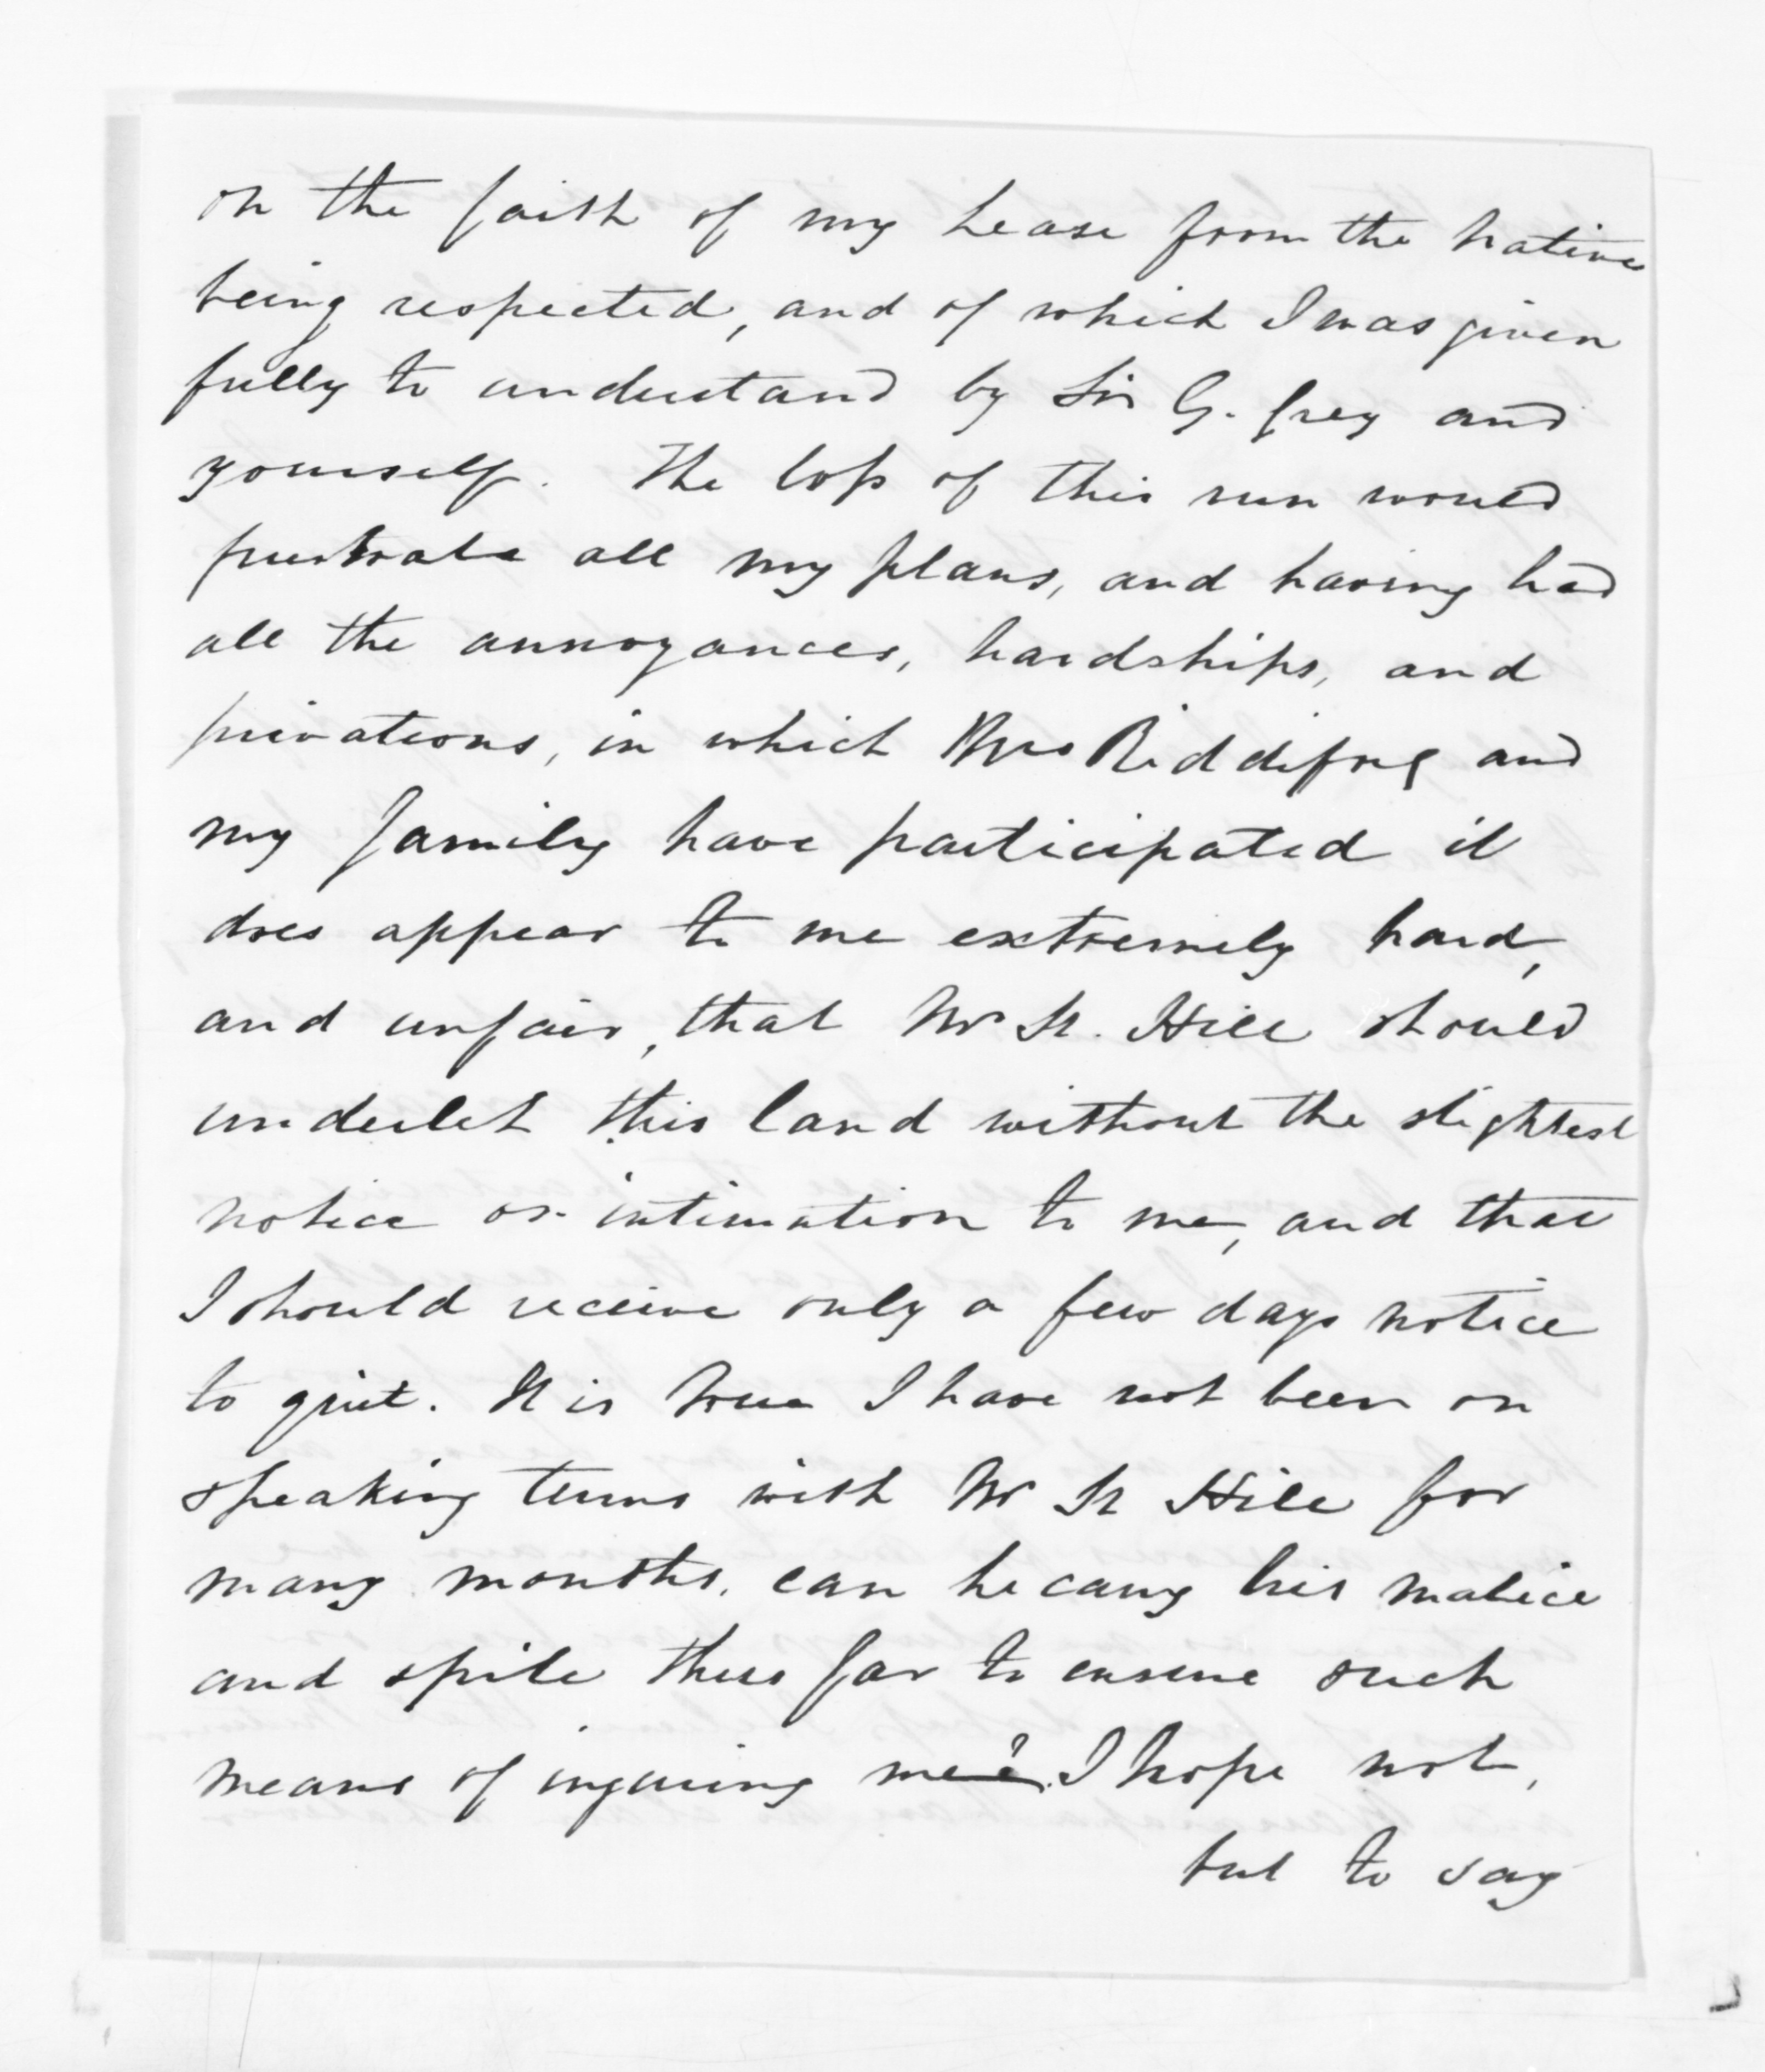 on the faith of my Lease from the natives
being respected, and of which I was given
fully to understand by Sir G. Grey and
yourself. The loss of this run would
frustrate all my plans, and having had
all the annoyances, hardships, and
privations, in which Mrs Riddiford and
my family have participated it
does appear to me extremely hard,
and unfair, that Mr St. Hill should
underlet this land without the slightest
notice or intimation to me, and that
I should receive only a few days notice
to quit. It is true I have not been on
speaking terms with Mr St Hill for
many months. can he carry his malice
and spite thus far to ensure such
means of injuring me? I hope not,
but to say